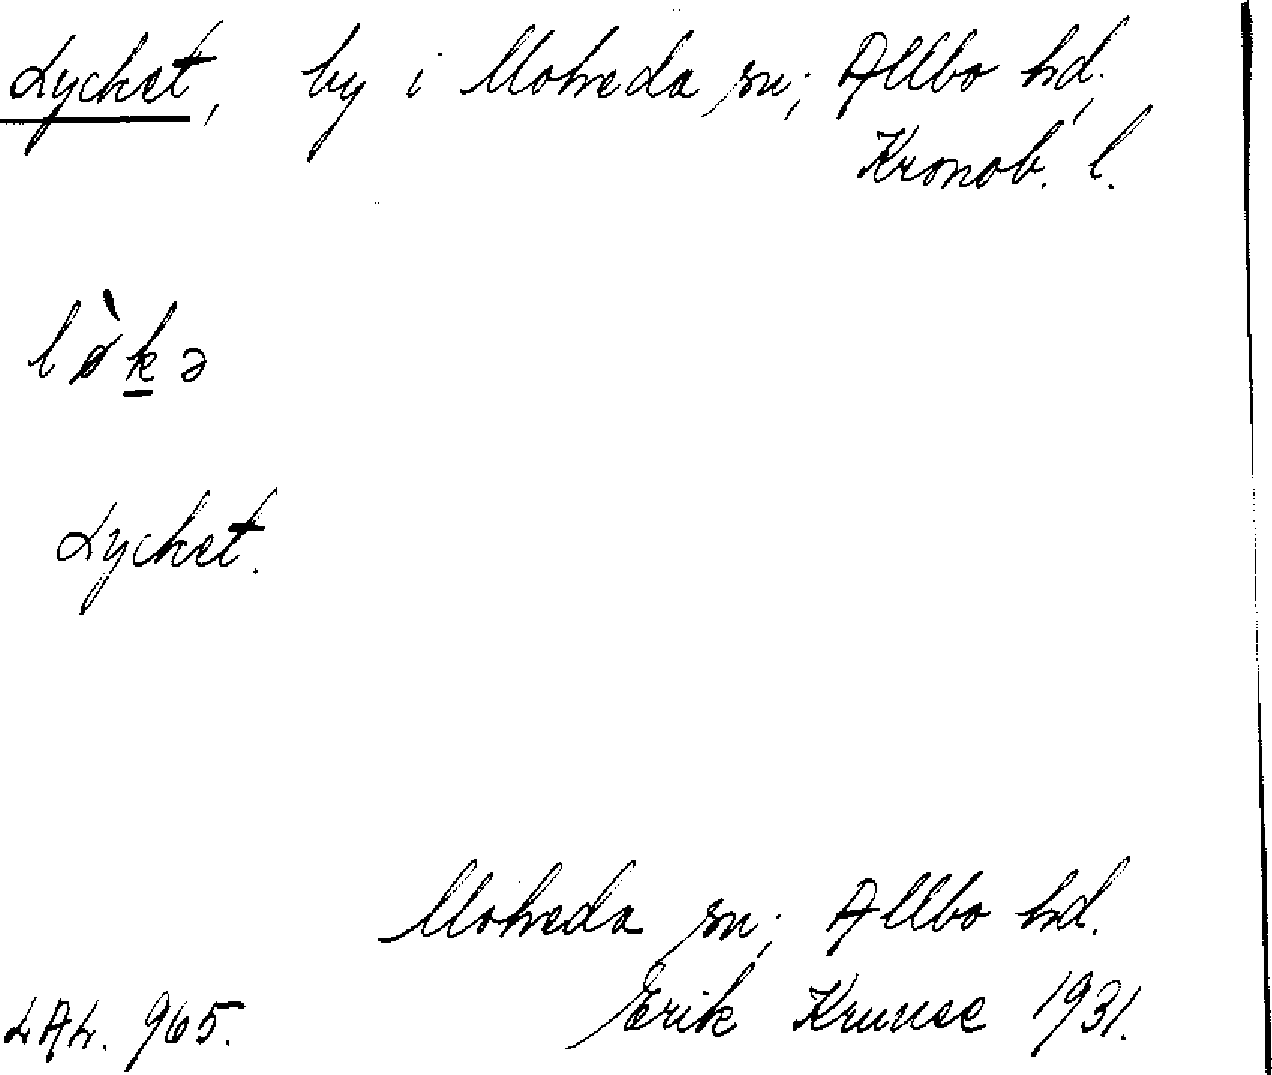 Lycket, by i Moheda sn; Allbo hd,
Kronob. l.
lø̀k̲ə
Lycket.
Moheda sn; Allbo hd.
LAL. 965. Erik Kruuse 1931.